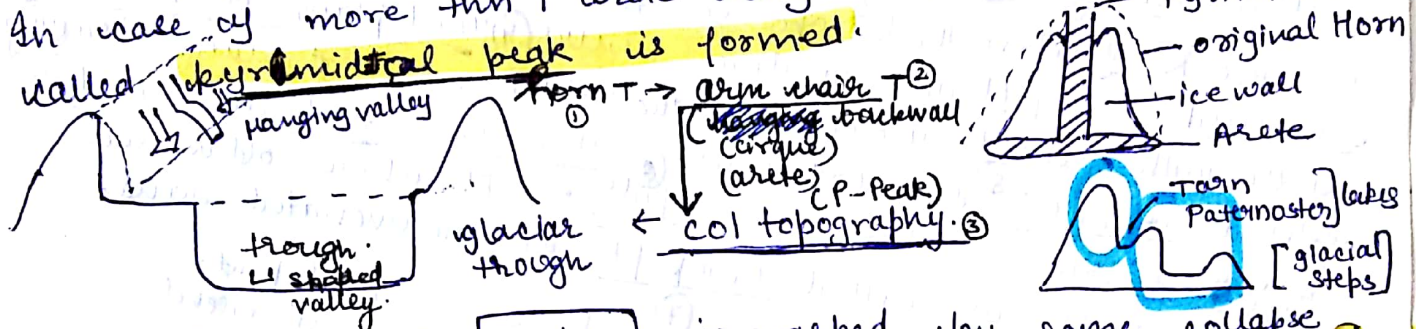 In case of more
called pyramidical peak is formed.
hanging valley
horn T → arm chair T ②
①
backwall
(cirque)
(arete)
(P-Peak)
← col topography. ③
glaciar
trough
trough.
U shaped
valley.
original Horn
ice wall
Arete
Tarn
Paternoster] lakes
[glacial
steps]
collapse